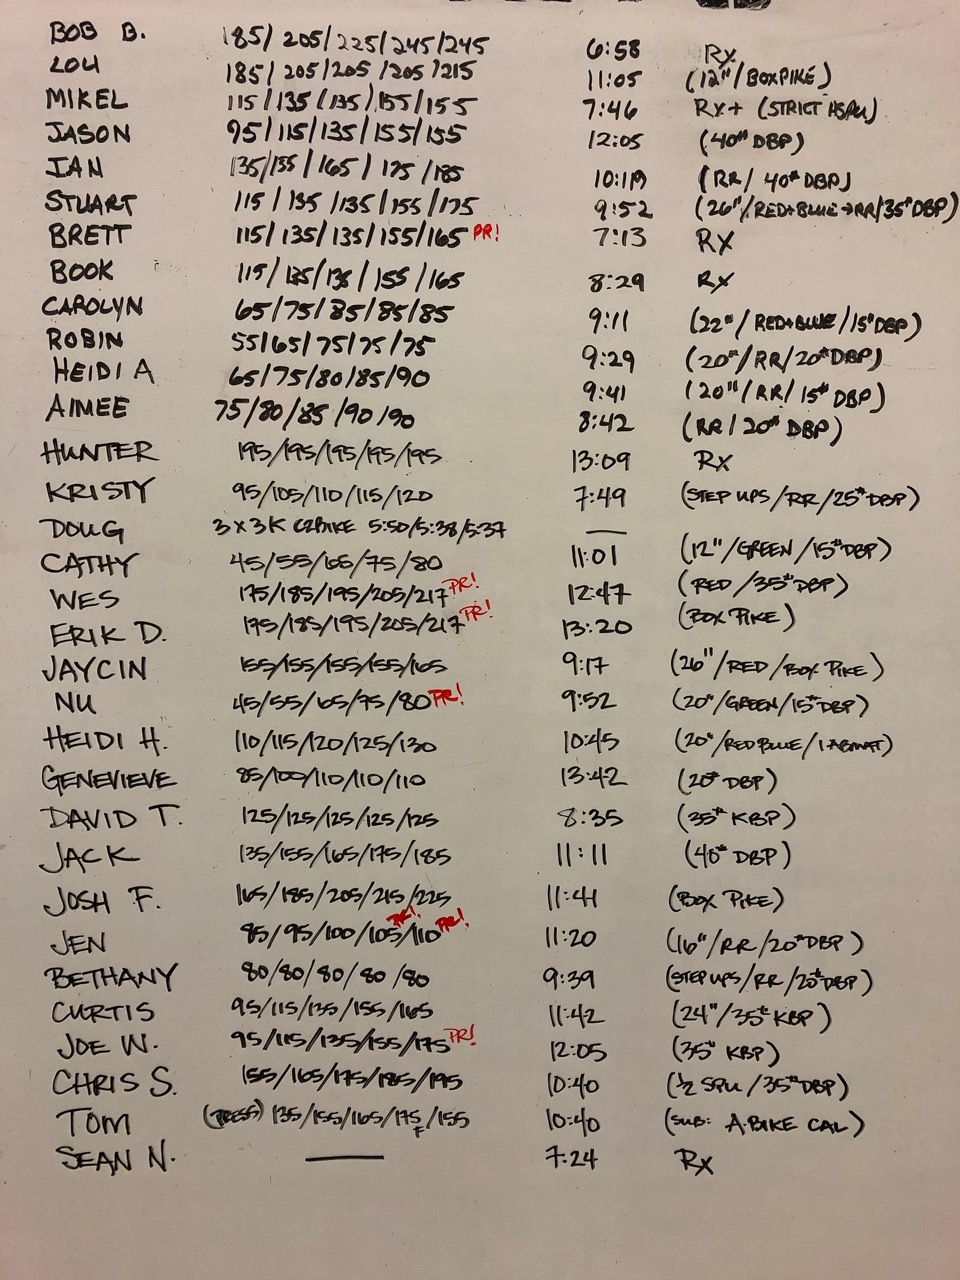 BOB B. 185/205/225/245/245 6:58 Rx
LOU 185/205/205/205/215 11:05 (12"/BOX PIKE)
MIKEL 115/135/135/155/155 7:46 Rx+ (STRICT HSPU)
JASON 95/115/135/155/155 12:05 (40# DBP)
IAN 135/155/165/175/185 10:19 (RR/40# DBP)
STUART 115/135/135/155/175 9:52 (26"/RED+BLUE→RR/35# DBP)
BRETT 115/135/135/155/165 PR! 7:13 RX
BOOK 115/135/135/155/165 8:29 Rx
CAROLYN 65/75/85/85/85 9:11 (22"/RED+BLUE/15# DBP)
ROBIN 55/65/75/75/75 9:29 (20"/RR/20# DBP)
HEIDI A 65/75/80/85/90 9:41 (20"/RR/15# DBP)
AIMEE 75/80/85/90/90 8:42 (RR/20# DBP)
HUNTER 195/195/195/195/195 13:09 RX
KRISTY 95/105/110/115/120 7:49 (STEP UPS/RR/25# DBP)
DOUG 3x3K C2BIKE 5:50/5:38/5:37 —
CATHY 45/55/65/75/80 11:01 (12"/GREEN/15# DBP)
WES 175/185/195/205/217 PR! 12:47 (RED/35# DBP)
ERIK D. 175/185/195/205/217 PR! 13:20 (BOX PIKE)
JAYCIN 155/155/155/155/165 9:17 (26"/RED/BOX PIKE)
NU 45/55/65/75/80 PR! 9:52 (20"/GREEN/15# DBP)
HEIDI H. 110/115/120/125/130 10:45 (20"/RED BLUE/1 ABMAT)
GENEVIEVE 85/100/110/110/110 13:42 (20# DBP)
DAVID T. 125/125/125/125/125 8:35 (35# KBP)
JACK 135/155/165/175/185 11:11 (40# DBP)
JOSH F. 165/185/205/215/225 11:41 (BOX PIKE)
JEN 85/95/100/105 PR!/110 PR! 11:20 (16"/RR/20# DBP)
BETHANY 80/80/80/80/80 9:39 (STEP UPS/RR/25# DBP)
CURTIS 95/115/135/155/165 11:42 (24"/35# KBP)
JOE W. 95/115/135/155/175 PR! 12:05 (35# KBP)
CHRIS S. 155/165/175/185/195 10:40 (½ SPU/35# DBP)
TOM (PRESS) 135/155/165/175F/155 10:40 (SUB: A-BIKE CAL)
SEAN N. — 7:24 Rx